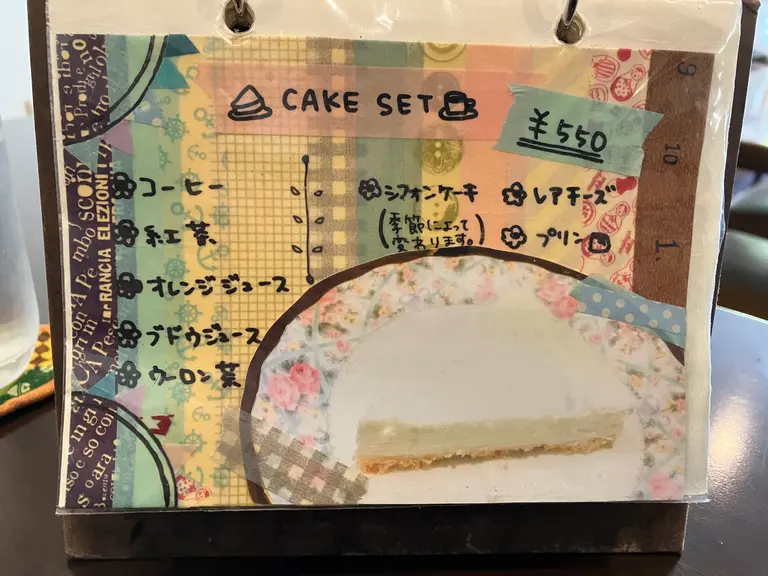 CAKE SET
¥550
コーヒー
紅茶
オレンジジュース
ブドウジュース
ウーロン茶
シフォンケーキ
(季節によって
変わります。)
レアチーズ
プリン
RANCIA ELEZIONI
9
10
1.